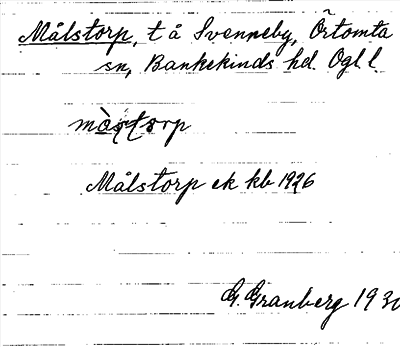 Målstorp, t å Svenneby, Örtomta
sn, Bankekinds hd. Ögl. l.
Målstorp ek kb 1926
G. Granberg 193